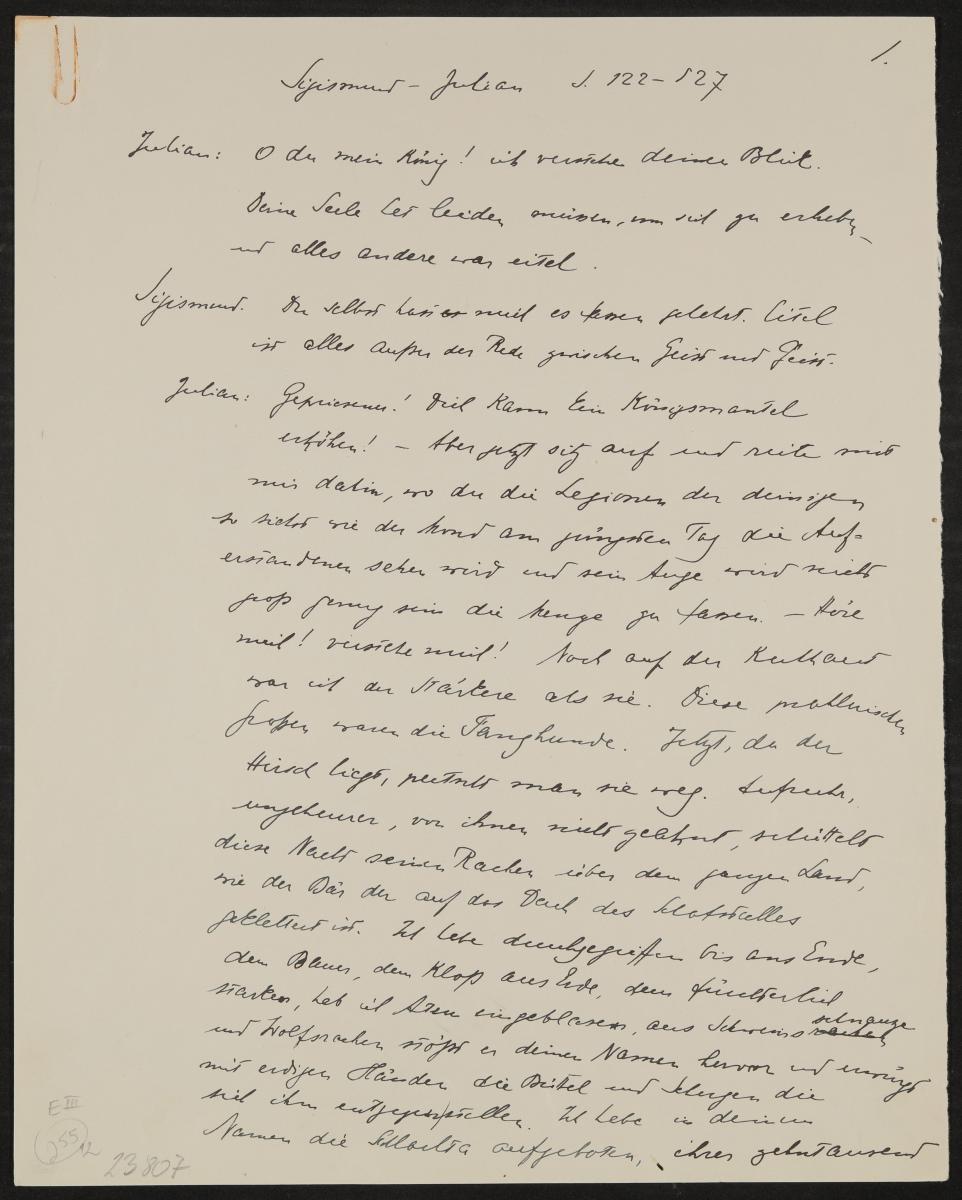 1.
Sigismund – Julian S. 122–127
Julian: O du mein König! ich verstehe deinen Blick.
Deine Seele hat leiden müssen, um sich zu erheben –
und alles andere war eitel.
Sigismund. Du selbst hast mich es fassen gelehrt. Eitel
ist alles außer der Rede zwischen Geist und Geist.
Julian: Gepriesener! Dich kann kein Königsmantel
erhöhen! – Aber jetzt sitz auf und reite mit
mir dahin, wo du die Legionen der deinigen
so siehst wie der Mond am jüngsten Tag die Auf=
erstandenen sehen wird und sein Auge wird nicht
groß genug sein die Menge zu fassen. – Höre
mich! verstehe mich! Noch auf der Kuthaut
war ich der Stärkere als sie. Diese prahlerischen
Großen waren die Fanghunde. Jetzt, da der
Hirsch liegt, peitscht man sie weg. Aufruhr,
ungeheurer, von ihnen nicht geahnt, schüttelt
diese Nacht seinen Rachen über dem ganzen Land,
wie der Bär der auf das Dach des Schafstalles
geklettert ist. Ich habe durchgegriffen bis ans Ende,
dem Bauer, dem Kloß aus Erde, dem fürchterlich
starken, hab ich Atem eingeblasen, aus Schweinsschnauze
und Wolfsrachen stößt er deinen Namen hervor und erwürgt
mit erdigen Händen die Büttel und Schergen die
sich ihm entgegenstellen. Ich habe in deinem
Namen die Schlachta aufgeboten, ihrer zehntausend
E III
255 12
23807